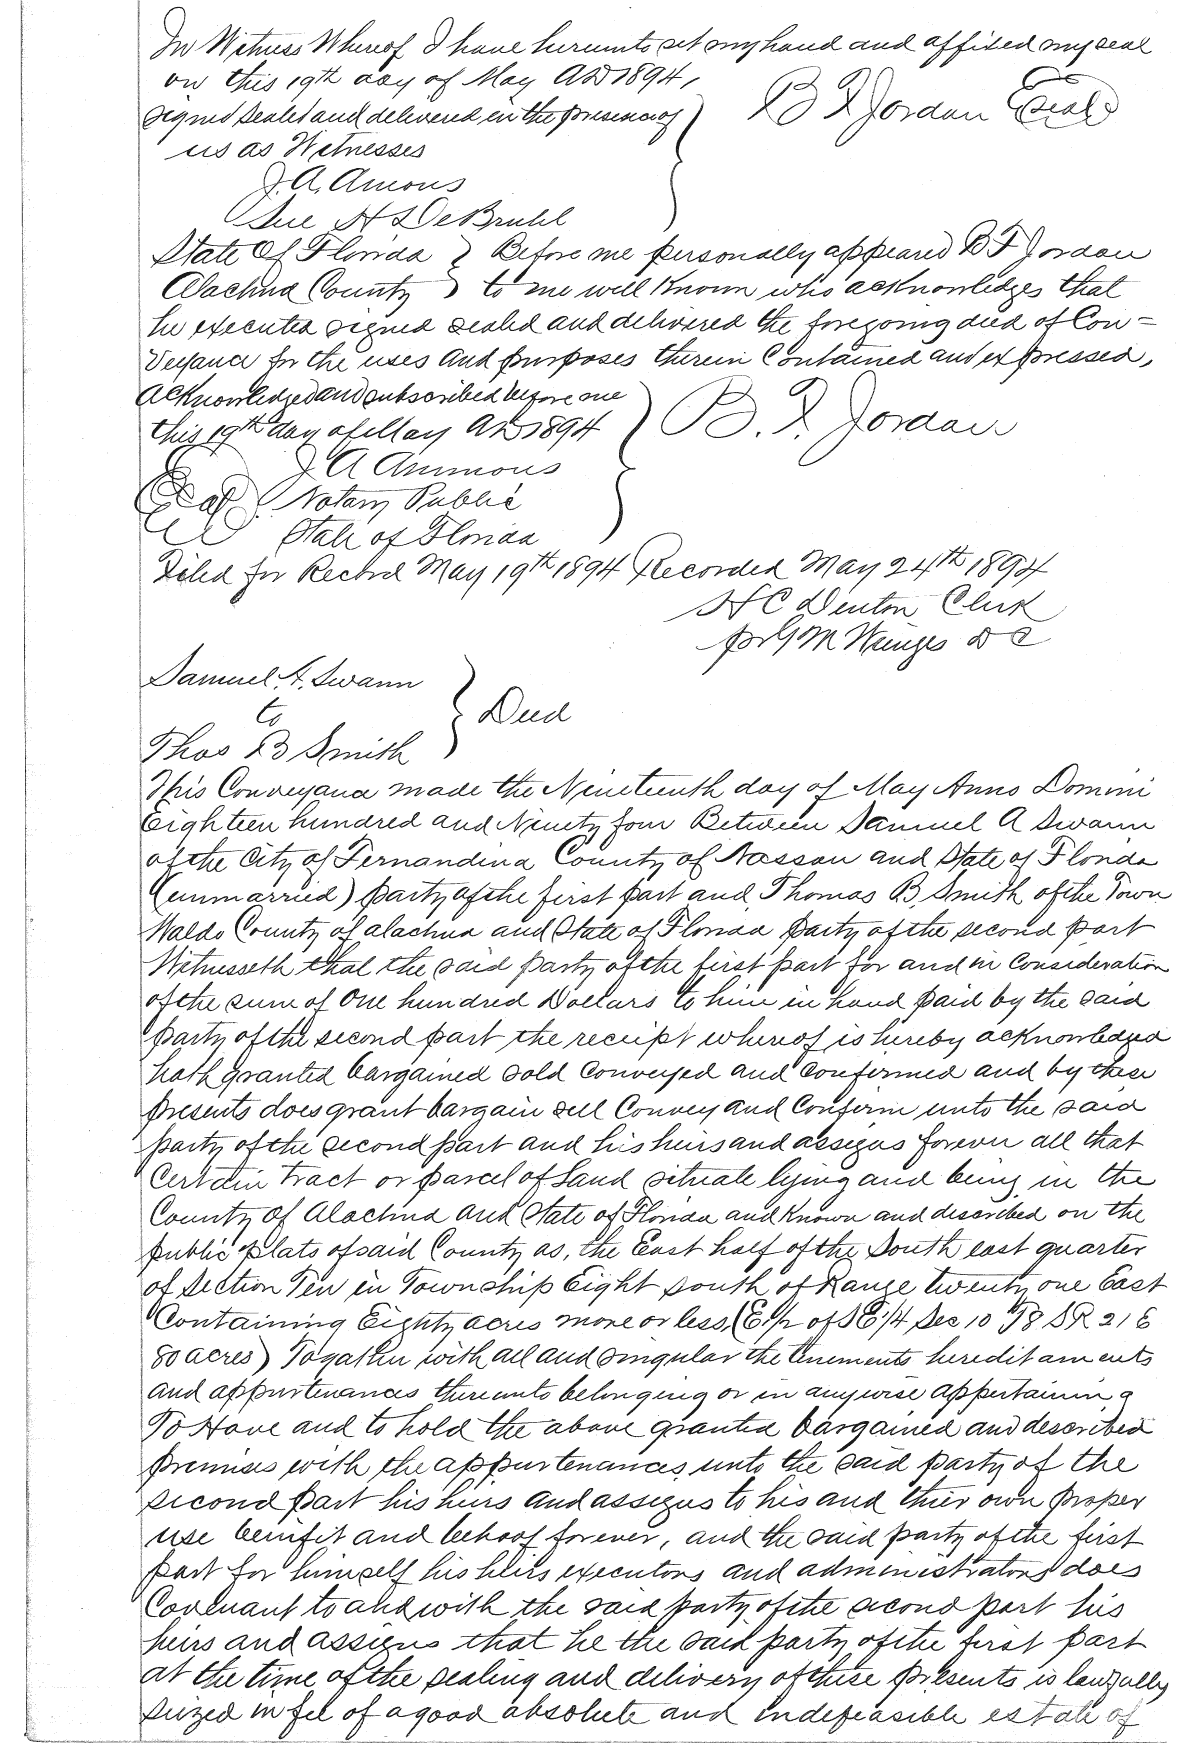 In Witness Whereof I have hereunto set my hand and affixed my seal
on this 19th day of May AD 1894,
signed sealed and delivered in the presence of } B F Jordan Seal
us as Witnesses
J. A. Amons
Sue H DeBruhl
State Of Florida } Before me personally appeared B F Jordan
Alachua County } to me well known who acknowledges that
he executed signed sealed and delivered the foregoing deed of Con=
veyance for the uses and purposes therein Contained and expressed,
Acknowledged and subscribed before me
this 19th day of May AD 1894 } B. F. Jordan
J A Ammons
Seal Notary Public
State of Florida
Filed for Record May 19th 1894 Recorded May 24th 1894
H C Denton Clerk
pr G M D C
Samuel A. Swann
to } Deed
Thos B Smith
This Conveyance made the Nineteenth day of May Anno Domini
Eighteen hundred and Ninety four Between Samuel A Swann
of the City of Fernandina County of Nassau and State of Florida
(unmarried) party of the first part and Thomas B. Smith of the Town
Waldo County of Alachua and State of Florida party of the second part
Witnesseth that the said party of the first part for and in consideration
of the sum of One hundred Dollars to him in hand paid by the said
party of the second part the receipt whereof is hereby acknowledged
hath granted bargained sold Conveyed and confirmed and by these
presents does grant bargain sell Convey and Confirm unto the said
party of the second part and his heirs and assigns forever all that
Certain tract or parcel of Land situate lying and being in the
County of Alachua and State of Florida and Known and described on the
public plats of said County as, the East half of the South east quarter
of Section Ten in Township Eight South of Range twenty one East
Containing Eighty acres more or less, (E 1/2 of SE 1/4 Sec 10 T 8 S R 21 E
80 acres) Togather with all and singular the tenements hereditaments
and appurtenances thereunto belonging or in anywise appertaining
To Have and to hold the above granted bargained and described
premises with the appurtenances unto the said party of the
second part his heirs and assigns to his and thier own proper
use benifit and behoof forever, and the said party of the first
part for himself his heirs executors and administrators does
Covenant to and with the said party of the second part his
heirs and assigns that he the said party of the first part
at the time of the sealing and delivery of these presents is lawfully
seized in fee of a good absolute and indefeasible estate of